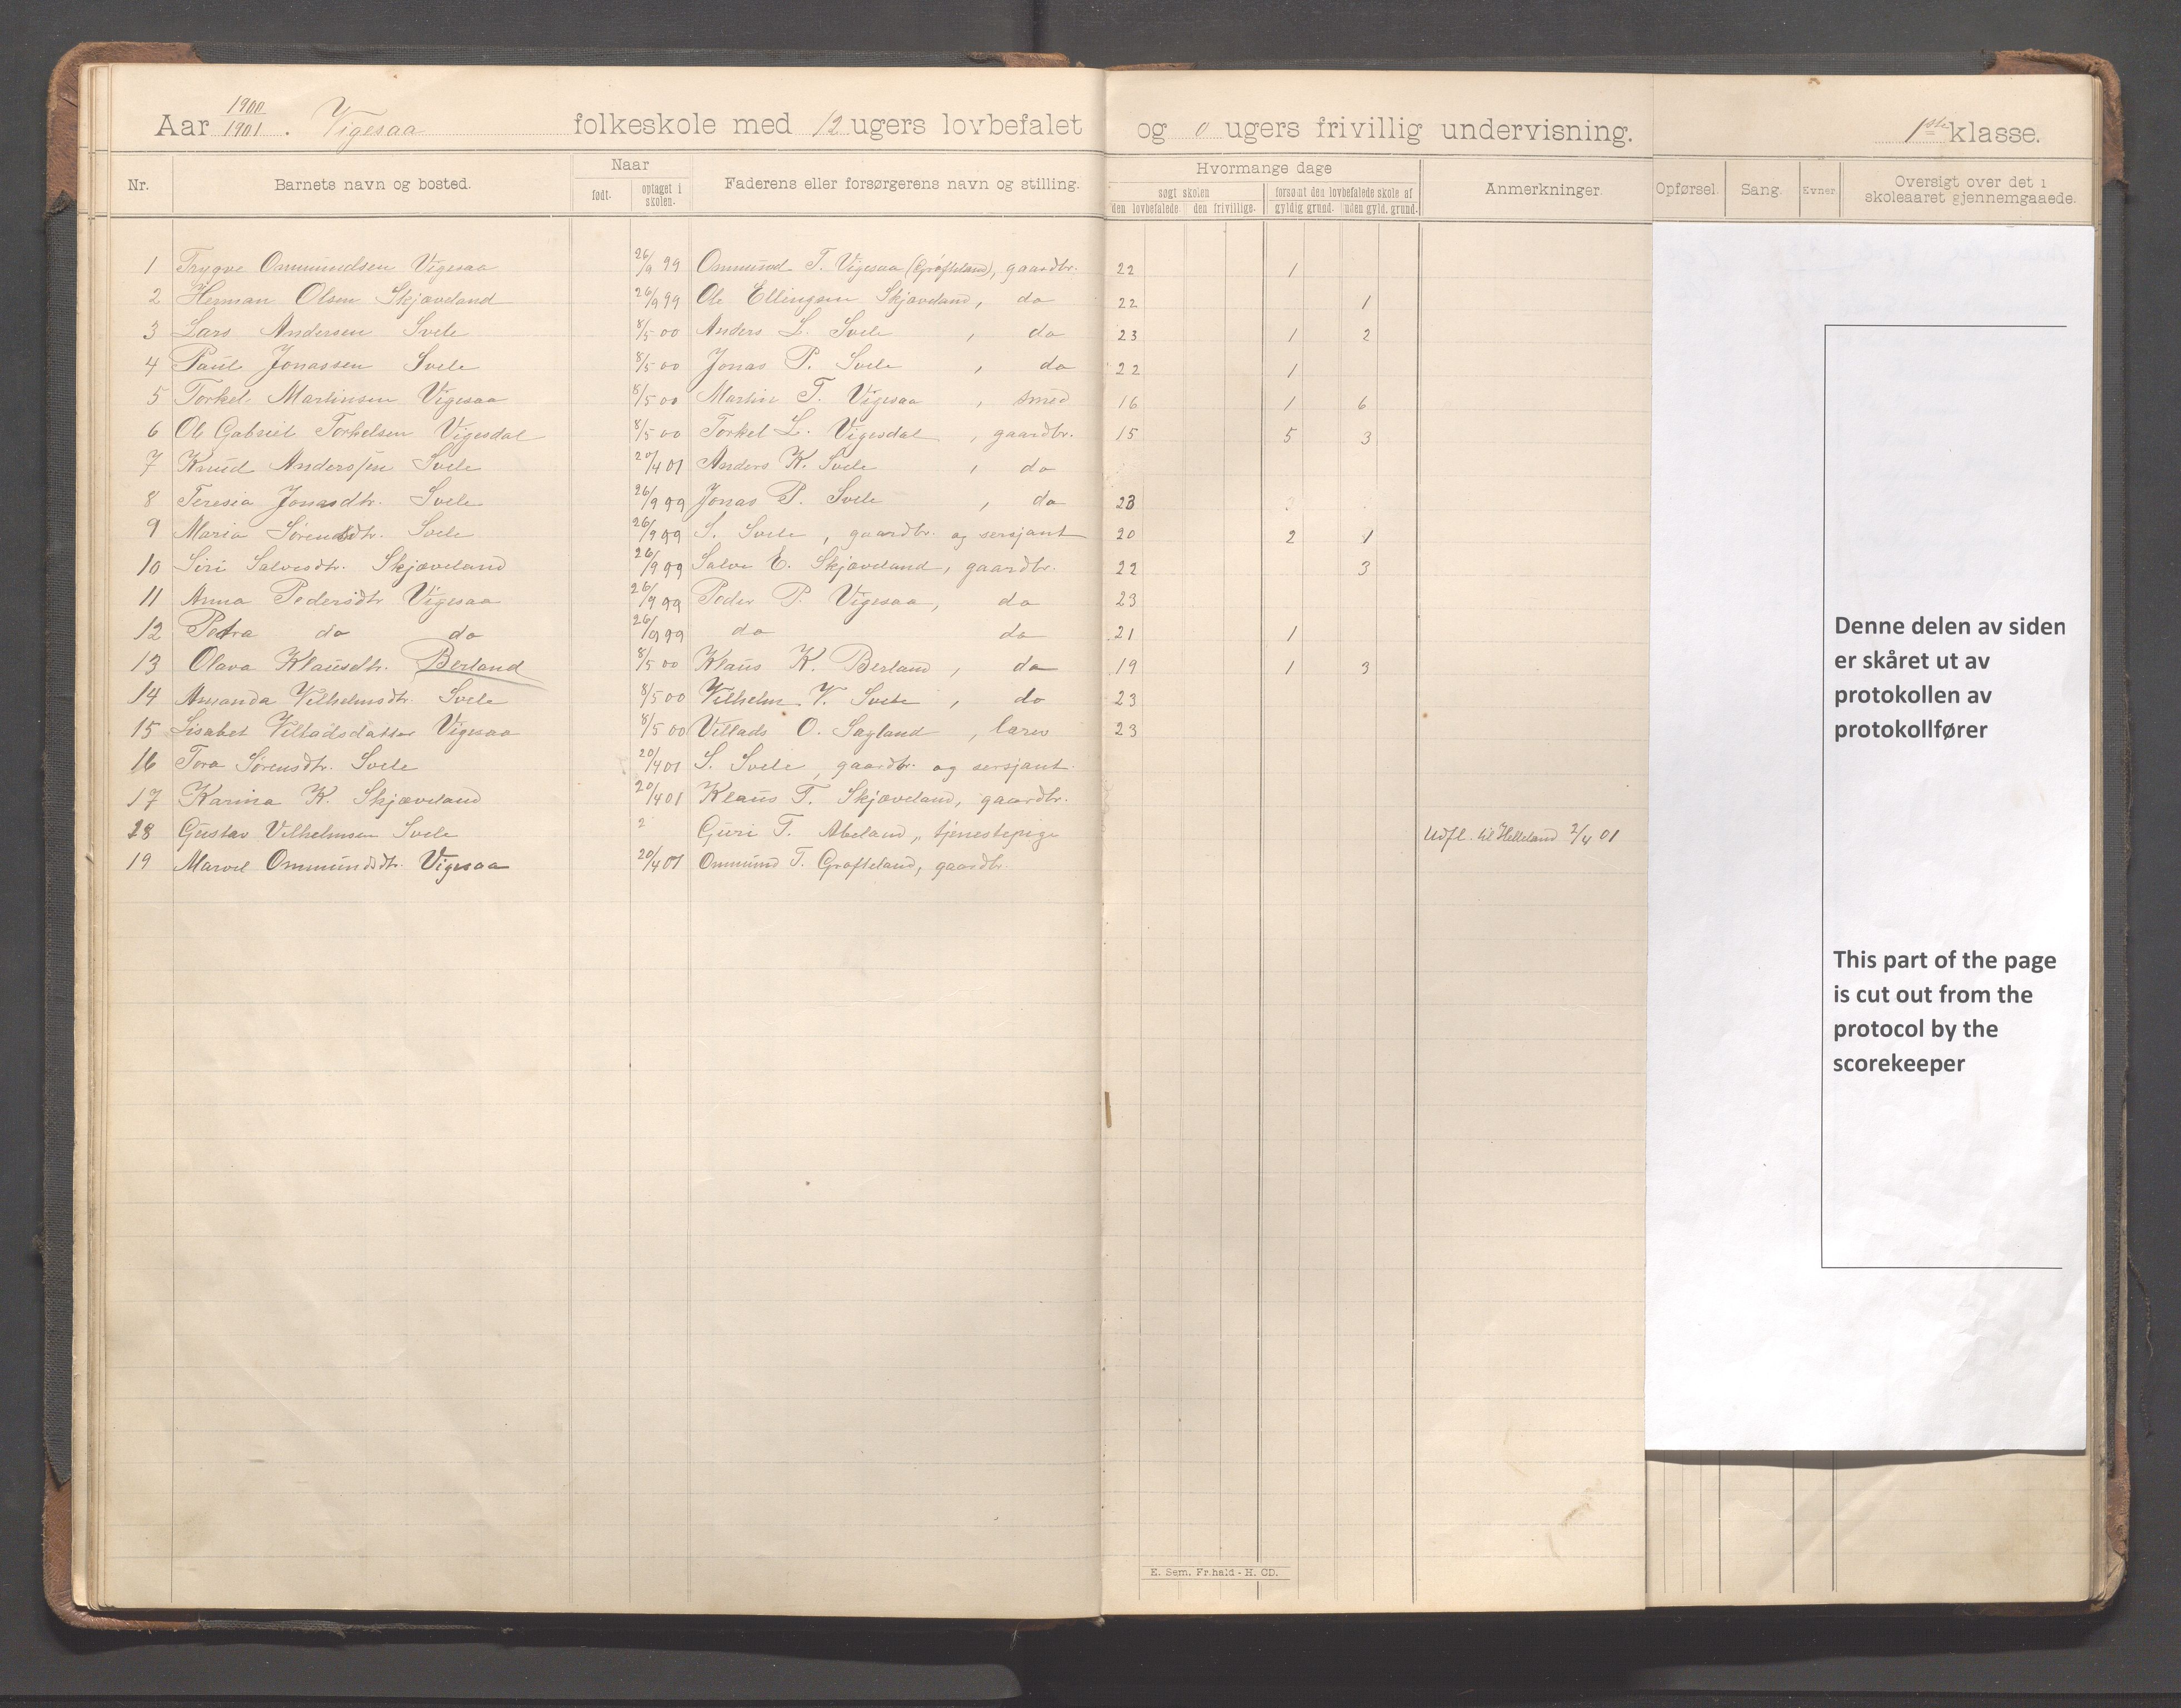 Aar 1900/1901. Vigesaa folkeskole med 12 ugers lovbefalet og 0 ugers frivillig undervisning. 1ste klasse.
Nr. Barnets navn og bosted. Naar født. optaget i skolen. Faderens eller forsørgerens navn og stilling. Hvormange dage søgt skolen den lovbefalede den frivillige. forsømt den lovbefalede skole af gyldig grund. uden gyld. grund. Anmerkninger Opførsel. Sang. Evner Oversigt over det i skoleaaret gjennemgaaede.
1 Trygve Ommundsen Vigesaa 26/9 99 Ommund T. Vigesaa (Grøfteland), gaardbr. 22 1
2 Herman Olsen Skjæveland 26/9 99 Ole Ellingsen Skjæveland, do 22 1
3 Lars Andersen Svele 8/5 00 Anders L. Svele, do 23 1 2
4 Paul Jonassen Svele 8/5 00 Jonas P. Svele, do 22 1
5 Torkel Martinsen Vigesaa 8/5 00 Martin T. Vigesaa, smed 16 1 6
6 Ole Gabriel Torkelsen Vigesdal 8/5 00 Torkel L. Vigesdal, gaardbr. 15 5 3
7 Knud Anderssen Svele 20/4 01 Anders K. Svele, do
8 Teresia Jonasdtr. Svele 26/9 99 Jonas P. Svele, do 23
9 Maria Sørensdtr. Svele 26/9 99 S. Svele, gaardbr. og sersjant 20 2 1
10 Siri Salvesdtr. Skjæveland 26/9 99 Salve E. Skjæveland, gaardbr. 22 3
11 Anna Pedersdtr Vigesaa 26/9 99 Peder P. Vigesaa, do 23
12 Petra do do 26/9 99 do do 21 1
13 Olava Klausdtr. Berland 8/5 00 Klaus K. Berland, do 19 1 3
14 Amanda Vilhelmsdtr. Svele 8/5 00 Vilhelm V. Svele, do 23
15 Lisabet Villadsdatter Vigesaa 8/5 00 Villads O. Sagland, lærer 23
16 Tora Sørensdtr. Svele 20/4 01 S. Svele, gaardbr. og sersjant.
17 Karina K. Skjæveland 20/4 01 Klaus T. Skjæveland, gaardbr.
18 Gustav Vilhelmsen Svele 2 Guri T. Abeland, tjenestepige Udfl. til Helleland 2/4 01
19 Marvel Ommundsdtr. Vigesaa 20/4 01 Ommund T. Grøfteland, gaardbr.
Denne delen av siden
er skåret ut av
protokollen av
protokollfører
This part of the page
is cut out from the
protocol by the
scorekeeper
E. Sem. Fr.hald - H. OD.